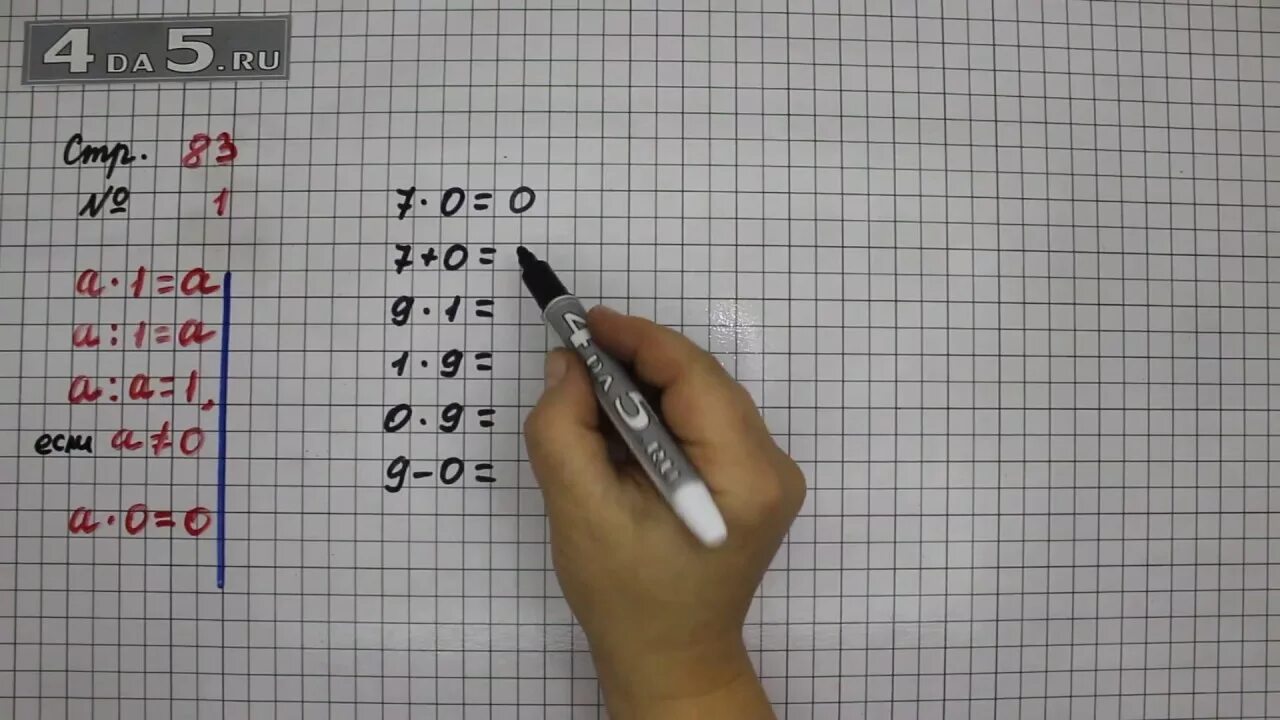 4DA5.RU
Стр. 83
№ 1
a · 1 = a
a : 1 = a
a : a = 1,
если a ≠ 0
a · 0 = 0
7 · 0 = 0
7 + 0 =
9 · 1 =
1 · 9 =
0 · 9 =
9 - 0 =
4DA5.RU